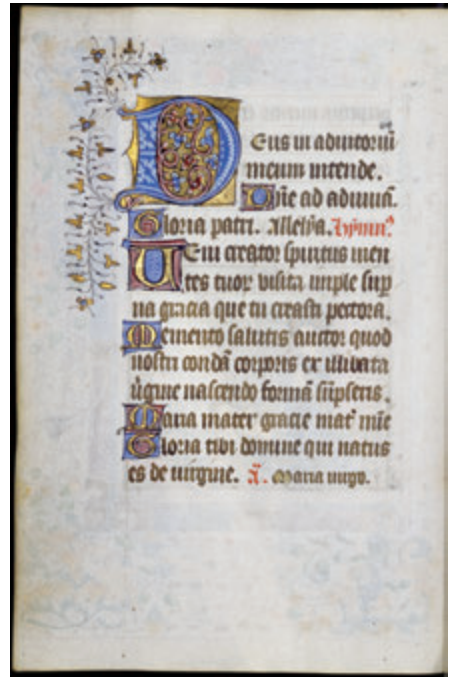 Deus in adiutoriū
meum intende.
Dn̄e ad adiuuā.
Gloria patri. Allel'ya. hymn⁹
Ueni creator spiritus men
tes tuoꝝ visita imple sup̄
na gracia que tu creasti pectora.
Memento salutis auctor quod
nostri condā corporis ex illibata
ūgine nascendo formā sūpseris.
Maria mater gracie mat' mīe
Gloria tibi domine qui natus
es de uirgine. ā. Maria uirgo.